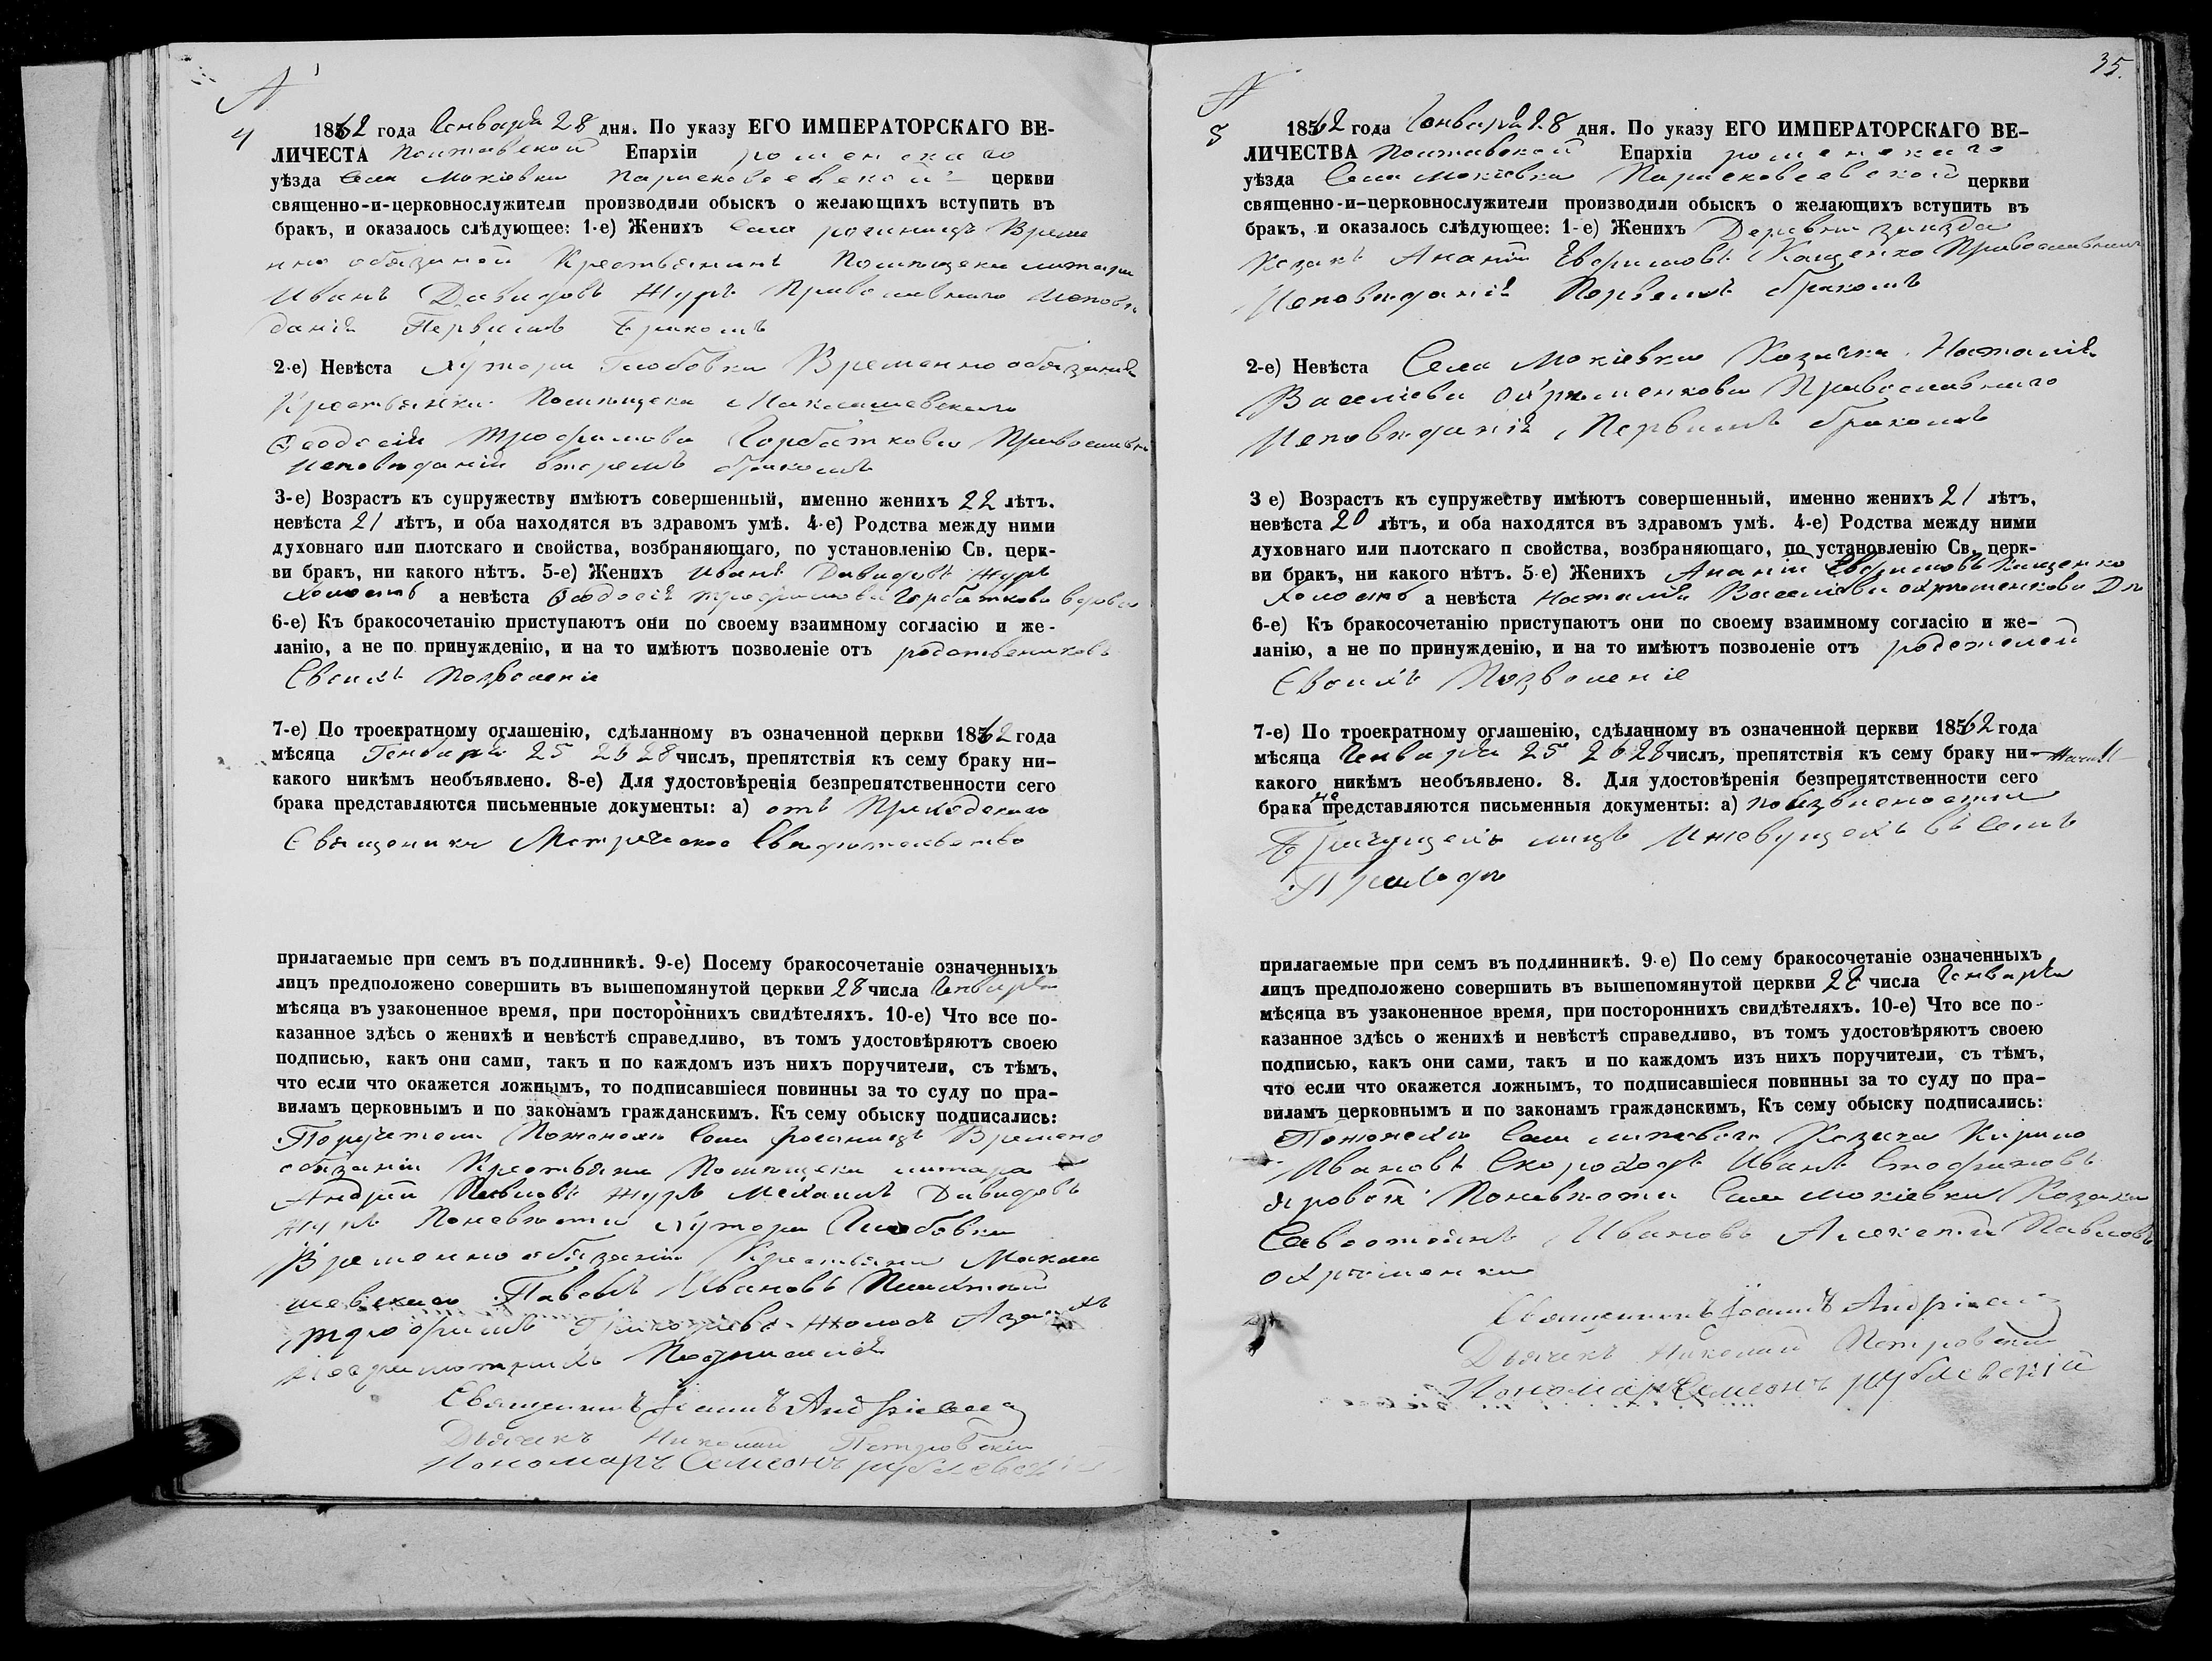 №
4
1862 года Генваря 28 дня. По указу ЕГО ИМПЕРАТОРСКАГО ВЕ-
ЛИЧЕСТА Полтавской Епархіи роменскаго
уѣзда Села Мокіевки Параскевеевской церкви
священно-и-церковнослужители производили обыскъ о желающихъ вступить въ
бракъ, и оказалось слѣдующее: 1-е) Женихъ Села рогинецъ Време
нно обязаной Крестьянинъ Помѣщека
Иванъ Давидовъ Журъ Православнаго Исповѣ
данія Первымъ Бракомъ
2-е) Невѣста хутора Глобовки Временно обязаная
Крестьянка Помѣщека Маклашевскаго
Ѳеодосія Трофимова Горбаткова Православна
Исповѣданія вторемъ бракомъ
3-е) Возрастъ къ супружеству имѣютъ совершенный, именно женихъ 22 лѣтъ.
невѣста 21 лѣтъ, и оба находятся въ здравомъ умѣ. 4-е) Родства между ними
духовнаго или плотскаго и свойства, возбраняющаго, по установленію Св. церк-
ви бракъ, ни какого нѣтъ. 5-е) Женихъ Иванъ Давидовъ Журъ
холостъ а невѣста Ѳеодосія Трофимова Горбаткова вдова
6-е) Къ бракосочетанію приступаютъ они по своему взаимному согласію и же-
ланію, а не по принужденію, и на то имѣютъ позволеніе отъ родственековъ
Своихъ Позволеніе
7-е) По троекратному оглашенію, сдѣланному въ означенной церкви 1862 года
мѣсяца Генваря 25 26 28 числъ, препятствія къ сему браку ни-
какого никѣмъ необъявлено. 8-е) Для удостовѣренія безпрепятственности сего
брака представляются письменные документы: а) отъ Приходскаго
Священика Метрическое Свидѣтельство
прилагаемые при семъ въ подлинникѣ. 9-е) Посему бракосочетаніе означенныхъ
лицъ предположено совершить въ вышепомянутой церкви 28 числа Генваря
мѣсяца въ узаконенное время, при постороннихъ свидѣтеляхъ. 10-е) Что все по-
казанное здѣсь о женихѣ и невѣстѣ справедливо, въ томъ удостовѣряютъ своею
подписью, какъ они сами, такъ и по каждомъ изъ нихъ поручители, съ тѣмъ,
что если что окажется ложнымъ, то подписавшіеся повинны за то суду по пра-
виламъ церковнымъ и по законамъ гражданскимъ. Къ сему обыску подписались:
Поручетели Поженеху Села рогинецъ Времено
обязаніи Крестьяни Помѣщека
Андрей Павловъ Журъ Меха​илъ Давидовъ
Журъ Поневѣсти хутора Глобовки
Временнообязаніи Крестьяни Макла
шевскаго Павелъ Ивановъ
Трофимъ Григорьевъ
Подписалсія
Священникъ Іоаннъ Андріевс
Дьячекъ Николай Петровскій
Пономарь Семеонъ рублевскій
35.
№
5
1862 года Генваря 28 дня. По указу ЕГО ИМПЕРАТОРСКАГО ВЕ-
ЛИЧЕСТВА Полтавской Епархіи роменскаго
уѣзда Села Мокіевки Парасковеевской церкви
священно-и-церковнослужители производили обыскъ о желающихъ вступить въ
бракъ, и оказалось слѣдующее: 1-е) Женихъ Деревни заизда
Козакъ Ананій Евфимовъ Кащенко Православнаго
Исповѣданія Первымъ бракомъ
2-е) Невѣста Села Мокіевки Козачка Наталія
Василіева охріменкова Православнаго
Исповѣданія Первымъ бракомъ
3 е) Возрастъ къ супружеству имѣютъ совершенный, именно женихъ 21 лѣтъ,
невѣста 20 лѣтъ, и оба находятся въ здравомъ умѣ. 4-е) Родства между ними
духовнаго или плотскаго п свойства, возбраняющаго, по установленію Св. церк-
ви бракъ, ни какого нѣтъ. 5-е) Женихъ Ананій Евфимовъ Кащенко
холостъ а невѣста Наталія Василіева охріменкова Дѣ
6-е) Къ бракосочетанію приступаютъ они по своему взаимному согласію и же-
ланію, а не по принужденію, и на то имѣютъ позволеніе отъ родетелей
Своихъ Позволеніе
7-е) По троекратному оглашенію, сдѣланному въ означенной церкви 1862 года
мѣсяца Генваря 25 26 28 числъ, препятствія къ сему браку ни-
какого никѣмъ необъявлено. 8. Для удостовѣренія безпрепятственности сего
брака не представляются письменныя документы: а) поизвѣсности
Брачущехъ лицъ Иживущехъ въ Семъ
Приходѣ
прилагаемые при семъ въ подлинникѣ. 9-е) По сему бракосочетаніе означенныхъ
лицъ предположено совершить въ вышепомянутой церкви 28 числа Генваря
мѣсяца въ узаконенное время, при постороннихъ свидѣтеляхъ. 10-е) Что все по-
казанное здѣсь о женихѣ и невѣстѣ справедливо, въ томъ удостовѣряютъ своею
подписью, какъ они сами, такъ и по каждомъ изъ нихъ поручители, съ тѣмъ,
что если что окажется ложнымъ, то подписавшіеся повинны за то суду по пра-
виламъ церковнымъ и по законамъ гражданскимъ, Къ сему обыску подписались:
Поженеху Села Козаки Кирило
Ивановъ Скороходъ Иванъ Стефановъ
Яровой Поневѣсти Села Мокіевки Козаки
Севастіянъ Ивановъ Алексей Павловъ
охріменки
Священникъ Іоаннъ Андріевс
Дьячекъ Николай Петровскій
Пономарь Семеонъ рублевскій